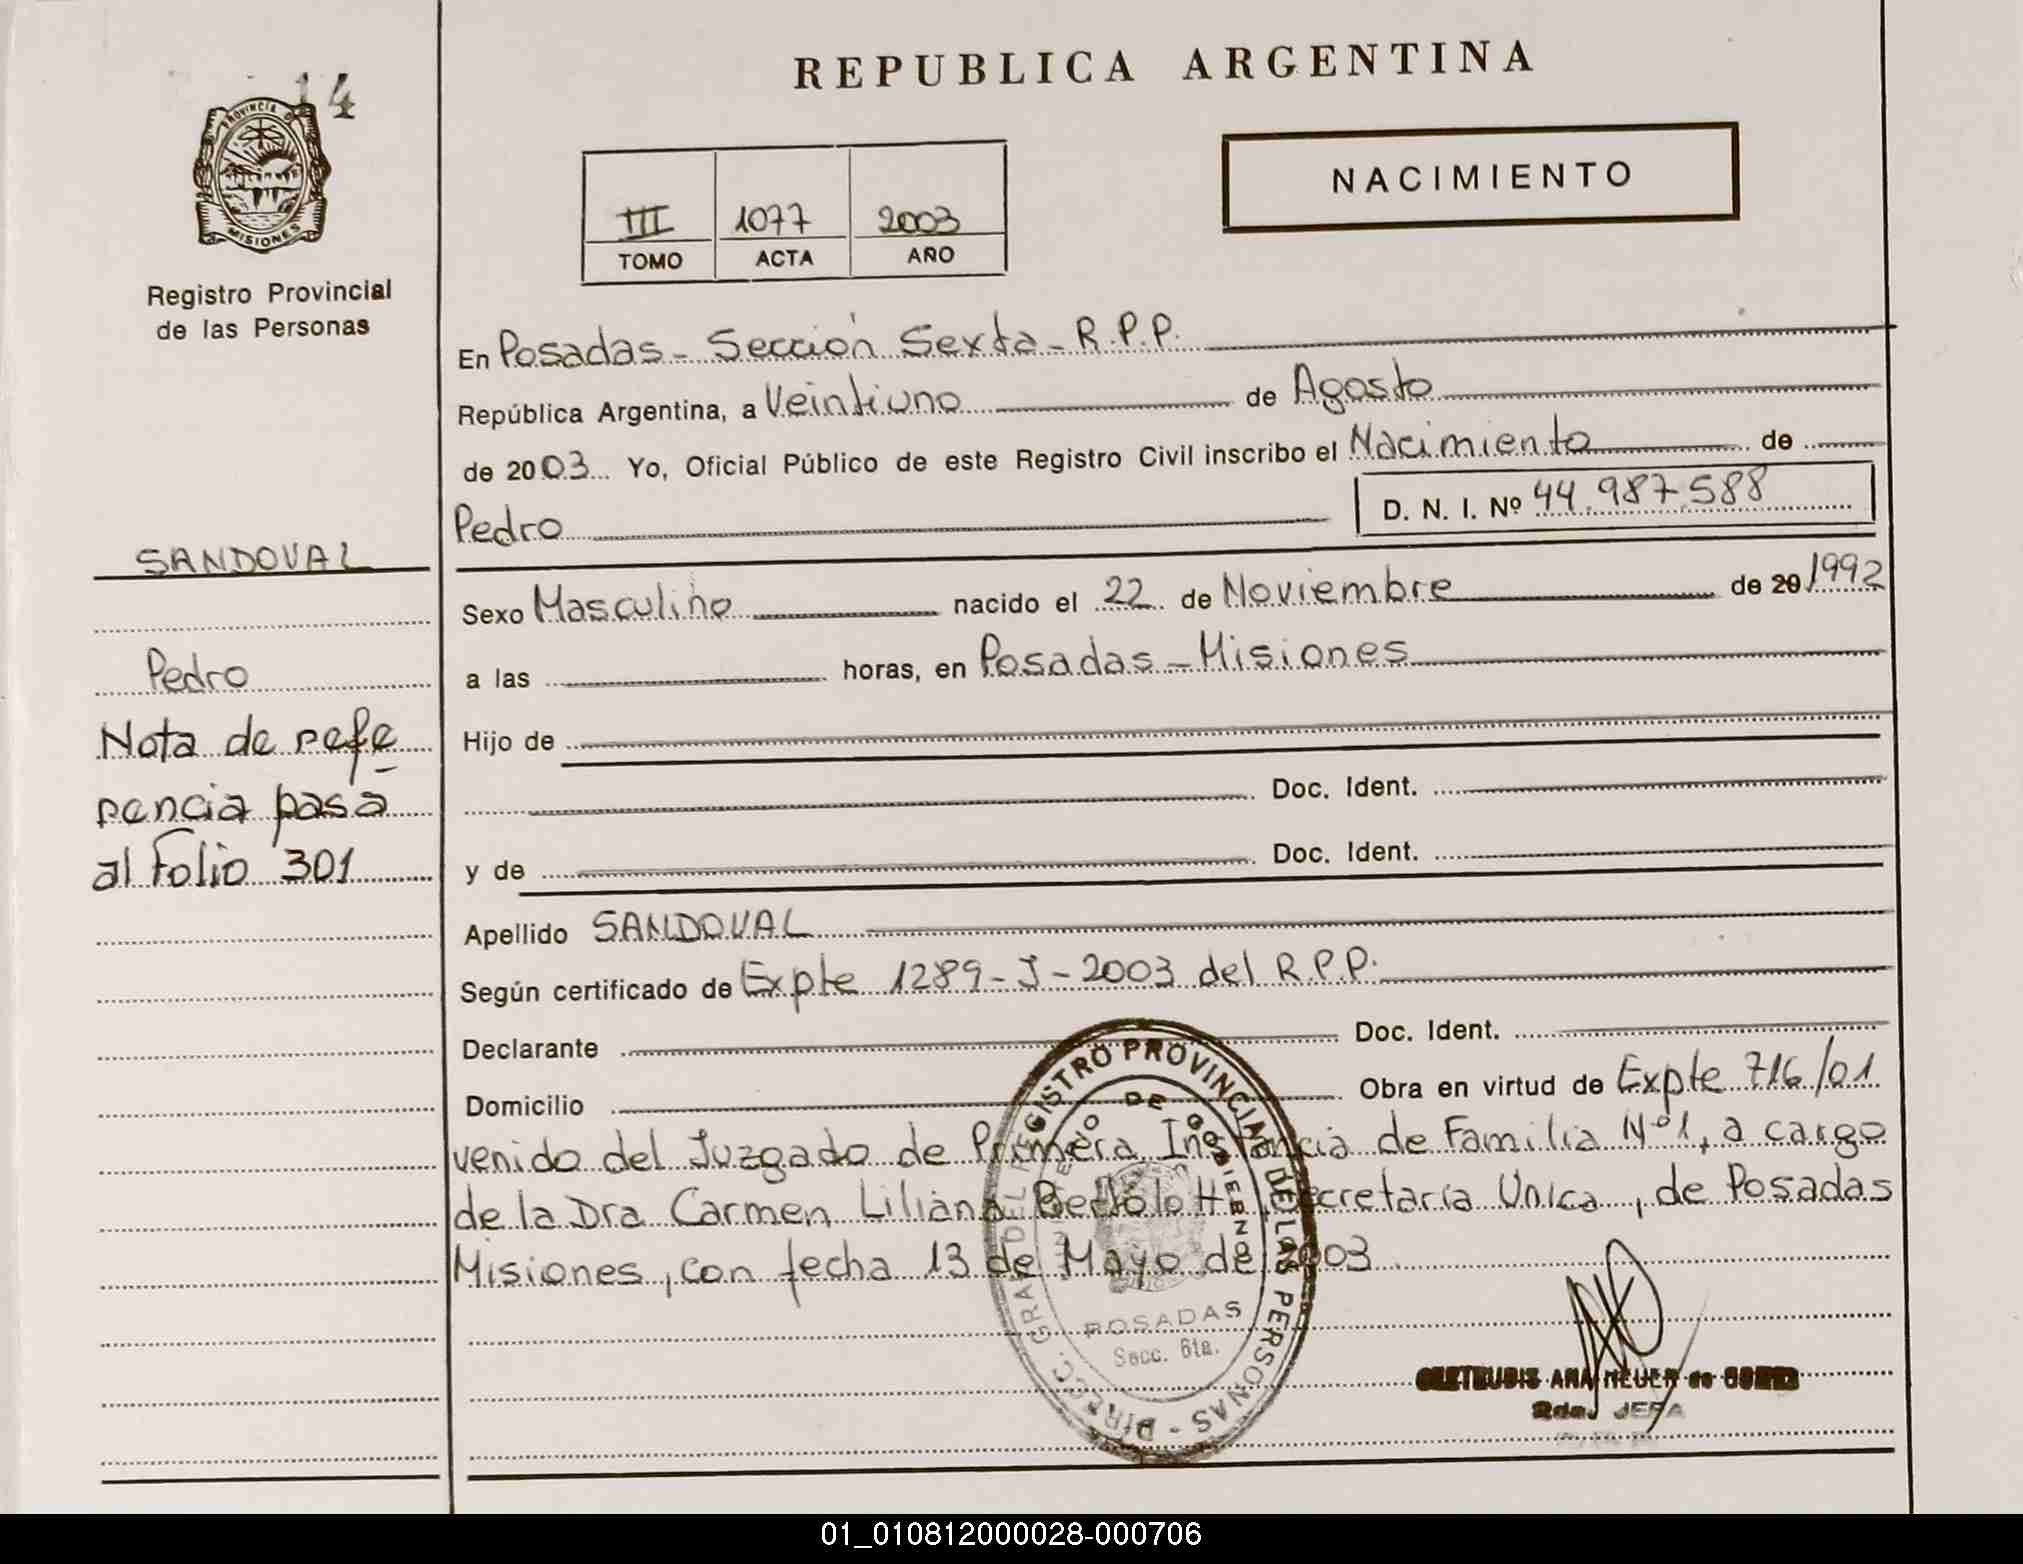 14
PROVINCIA DE
MISIONES
Registro Provincial
de las Personas
SANDOVAL
Pedro
Nota de refe
rencia pasa
al Folio 301
REPUBLICA ARGENTINA
NACIMIENTO
III 1077 2003
TOMO ACTA AÑO
En Posadas - Sección Sexta - R.P.P.
República Argentina, a Veintiuno de Agosto
de 2003 Yo, Oficial Público de este Registro Civil inscribo el Nacimiento de
Pedro D. N. I. Nº 44.987.588
Sexo Masculino nacido el 22 de Noviembre de 20 1992
a las horas, en Posadas - Misiones
Hijo de
Doc. Ident.
y de Doc. Ident.
Apellido SANDOVAL
Según certificado de Expte 1289-J-2003 del R.P.P.
Declarante Doc. Ident.
Domicilio Obra en virtud de Expte 716/01
venido del Juzgado de Primera Instancia de Familia Nº1, a cargo
de la Dra Carmen Liliana Bertolotti, Secretaría Unica, de Posadas
Misiones, con fecha 13 de Mayo de 2003
DIRECC. GRAL DEL REGISTRO PROVINCIAL DE LAS PERSONAS
DE GOBIERNO
POSADAS
Secc. 6ta.
GERTRUDIS ANA NEUER de
2da. JEFA
01_010812000028-000706